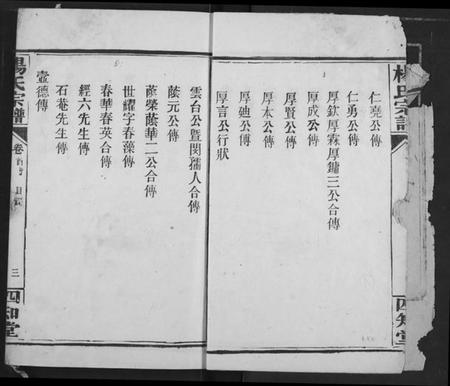 楊氏宗譜
四知堂
仁堯公傳
仁勇公傳
厚欽厚霖厚鏞三公合傳
厚成公傳
厚賢公傳
厚本公傳
厚廸公傳
厚言公行狀
雲台公暨閔孺人合傳
蔭元公傳
蔭榮蔭華二公合傳
世耀字春藻傳
春華春英合傳
經六先生傳
石菴先生傳
壹德傳
楊氏宗譜
卷
三
四知堂